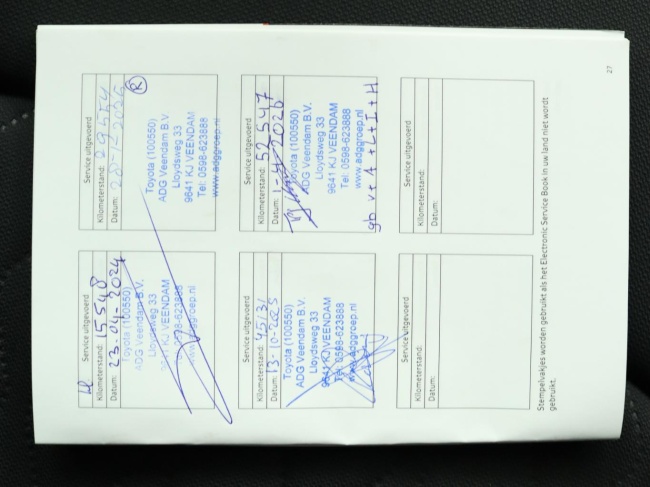 Service uitgevoerd
Kilometerstand: 15548
Datum: 23-04-2024
Toyota (100550)
ADG Veendam B.V.
Lloydsweg 33
9641 KJ VEENDAM
Tel: 0598-623888
www.adggroep.nl
Service uitgevoerd
Kilometerstand: 29554
Datum:
R
Toyota (100550)
ADG Veendam B.V.
Lloydsweg 33
9641 KJ VEENDAM
Tel: 0598-623888
www.adggroep.nl
Service uitgevoerd
Kilometerstand: 45131
Datum: 13-10-2025
Toyota (100550)
ADG Veendam B.V.
Lloydsweg 33
9641 KJ VEENDAM
Tel: 0598-623888
www.adggroep.nl
Service uitgevoerd
Kilometerstand: 52547
Datum:
Toyota (100550)
ADG Veendam B.V.
Lloydsweg 33
9641 KJ VEENDAM
Tel: 0598-623888
www.adggroep.nl
gb v+A+L+I+H
Service uitgevoerd
Kilometerstand:
Datum:
Service uitgevoerd
Kilometerstand:
Datum:
Stempelvakjes worden gebruikt als het Electronic Service Book in uw land niet wordt
gebruikt.
27